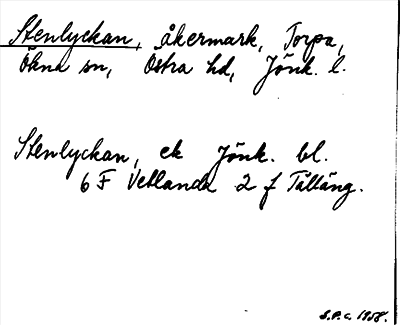 Stenlyckan, åkermark, Torpa,
Ökna sn, Östra hd, Jönk. l.
Stenlyckan, ek Jönk. bl.
6 F Vetlanda 2 f Tälläng.
S.P.c. 1958.